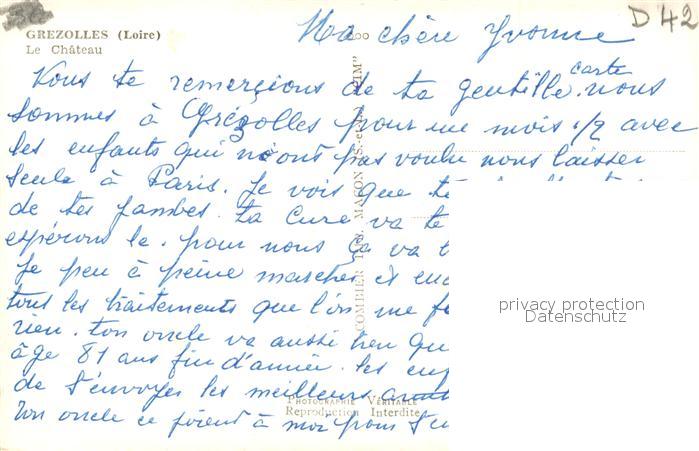 D 42
GREZOLLES (Loire)
Le Château
Ma chère Yvonne
Nous te remerçions de ta gentille carte. nous
sommes à Grézolles pour un mois 1/2 avec
les enfants qui n'ont pas voulu nous laisser
seuls à Paris. Je vois que
de tes jambes. ta cure va te
espérons le. pour nous ça va
Je peu à peine marcher et
tous les traitements que l'on me
rien. ton oncle va aussi bien
âge 81 ans fin d'année. les
de t'envoyer les meilleurs
Ton oncle ce joient à moi pour
COMBIER IMP. MACON
PHOTOGRAPHIE VÉRITABLE
Reproduction Interdite
privacy protection
Datenschutz